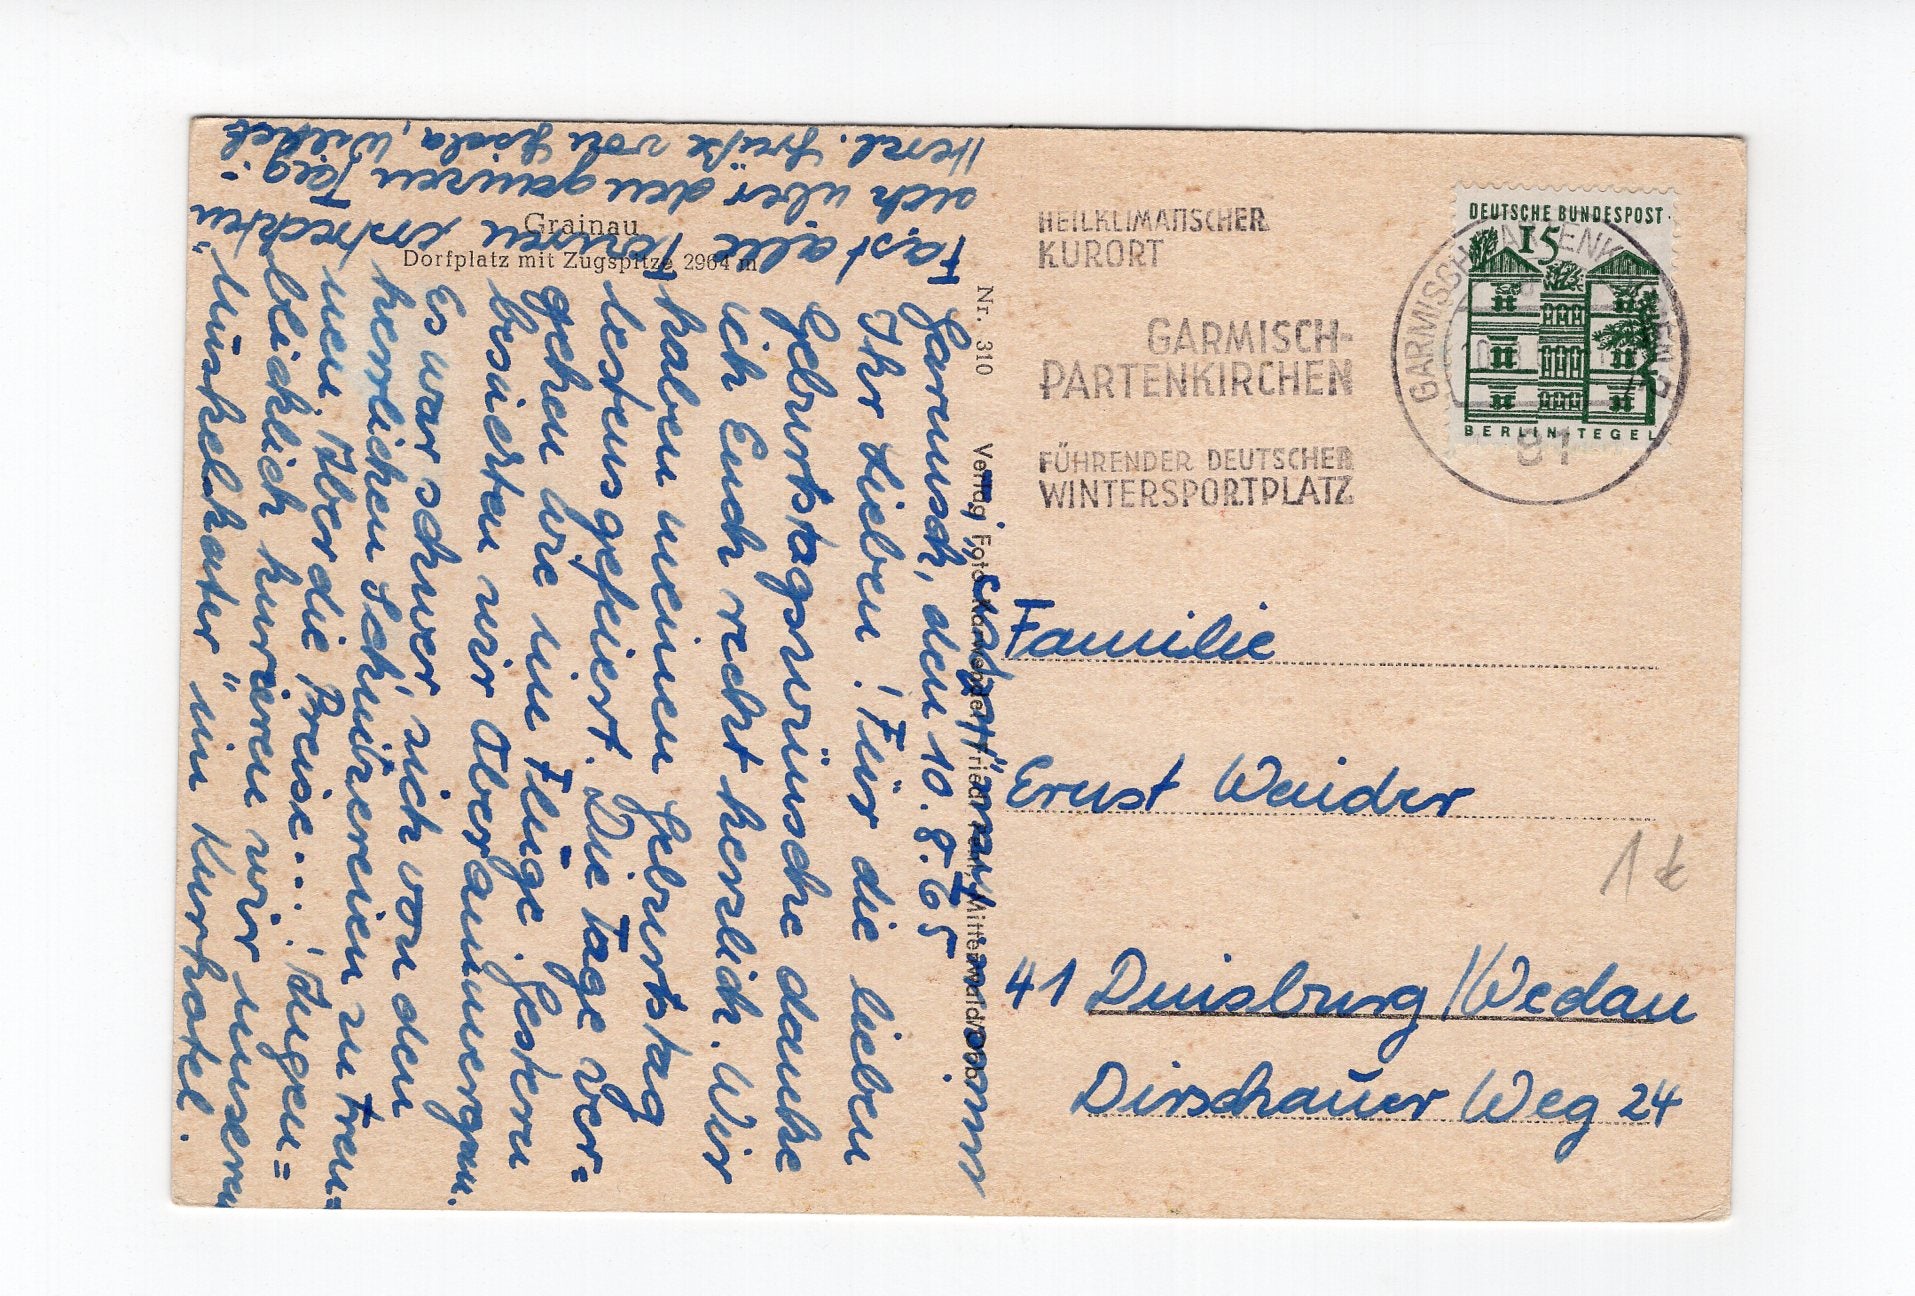 Grainau
Dorfplatz mit Zugspitze 2964 m
Nr. 310
Verlag Foto-Karwendel, Mittenwald/Obb
HEILKLIMATISCHER
KURORT
GARMISCH-
PARTENKIRCHEN
FÜHRENDER DEUTSCHER
WINTERSPORTPLATZ
DEUTSCHE BUNDESPOST
15
BERLIN TEGEL
GARMISCH-PARTENKIRCHEN
81
Garmisch, den 10.8.65
Ihr Lieben! Für die lieben
Geburtstagswünsche danke
ich Euch recht herzlich. Wir
haben meinen Geburtstag
bestens gefeiert. Die Tage ver=
gehen wie im Fluge. Gestern
besuchten wir Oberammergau.
Es war schwer, sich von den
herrlichen Schnitzereien zu tren=
nen. Aber die Preise...! Augen=
blicklich kurieren wir unseren
"Muskelkater" im Kurhotel.
Fast alle Touren erstrecken
sich über den ganzen Tag.
Herzl. Grüße von
Familie
Ernst Waider
41 Duisburg/Wedau
Dirschauer Weg 24
1 €